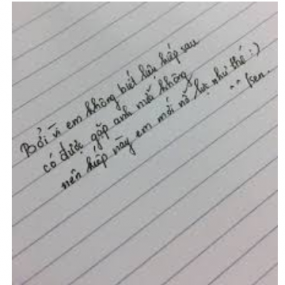 Bởi vì em không biết liệu kiếp sau
có được gặp anh nữa không
nên kiếp này em mới nỗ lực như thế :)
^^ Ken.